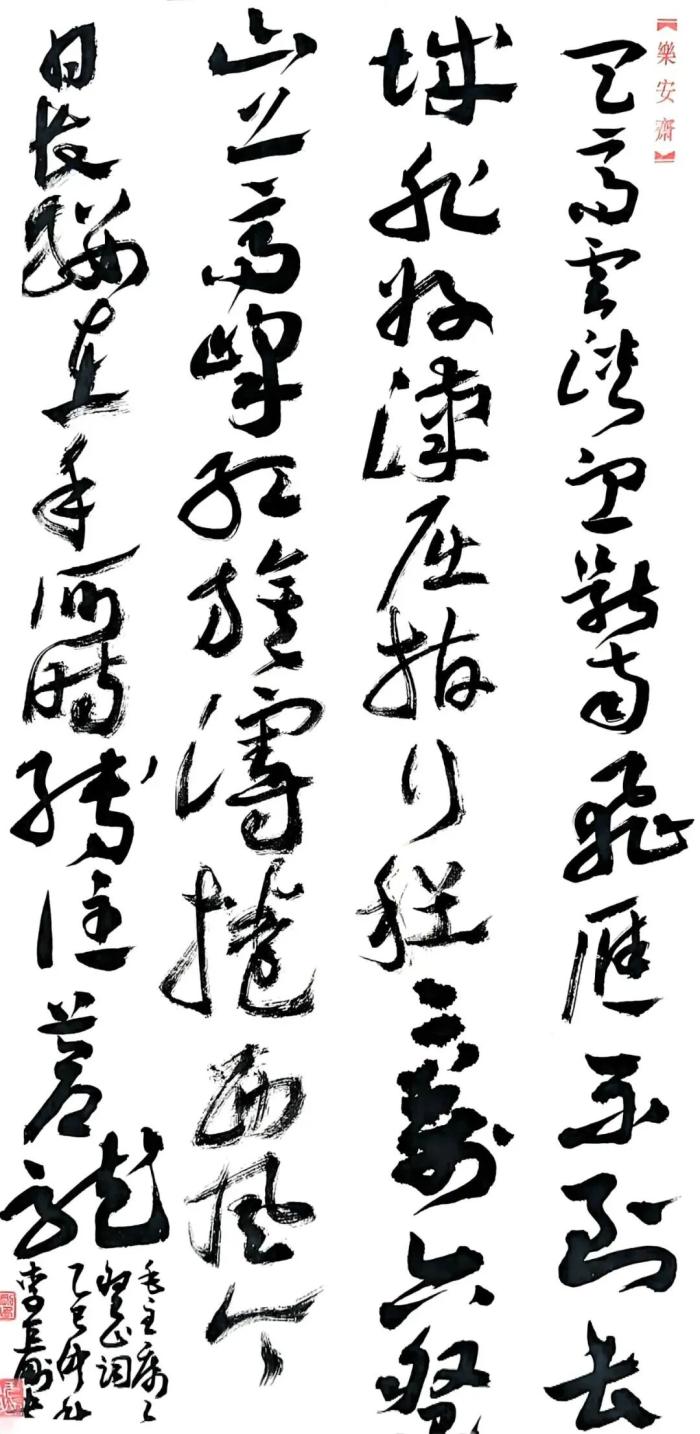 【樂安齋】
天高雲淡望斷南飛雁不到長
城非好漢屈指行程二萬六盤
山上高峰紅旗漫捲西風今
日長纓在手何時縛住蒼龍
毛主席六
盤山詞
乙巳仲秋
李剛書